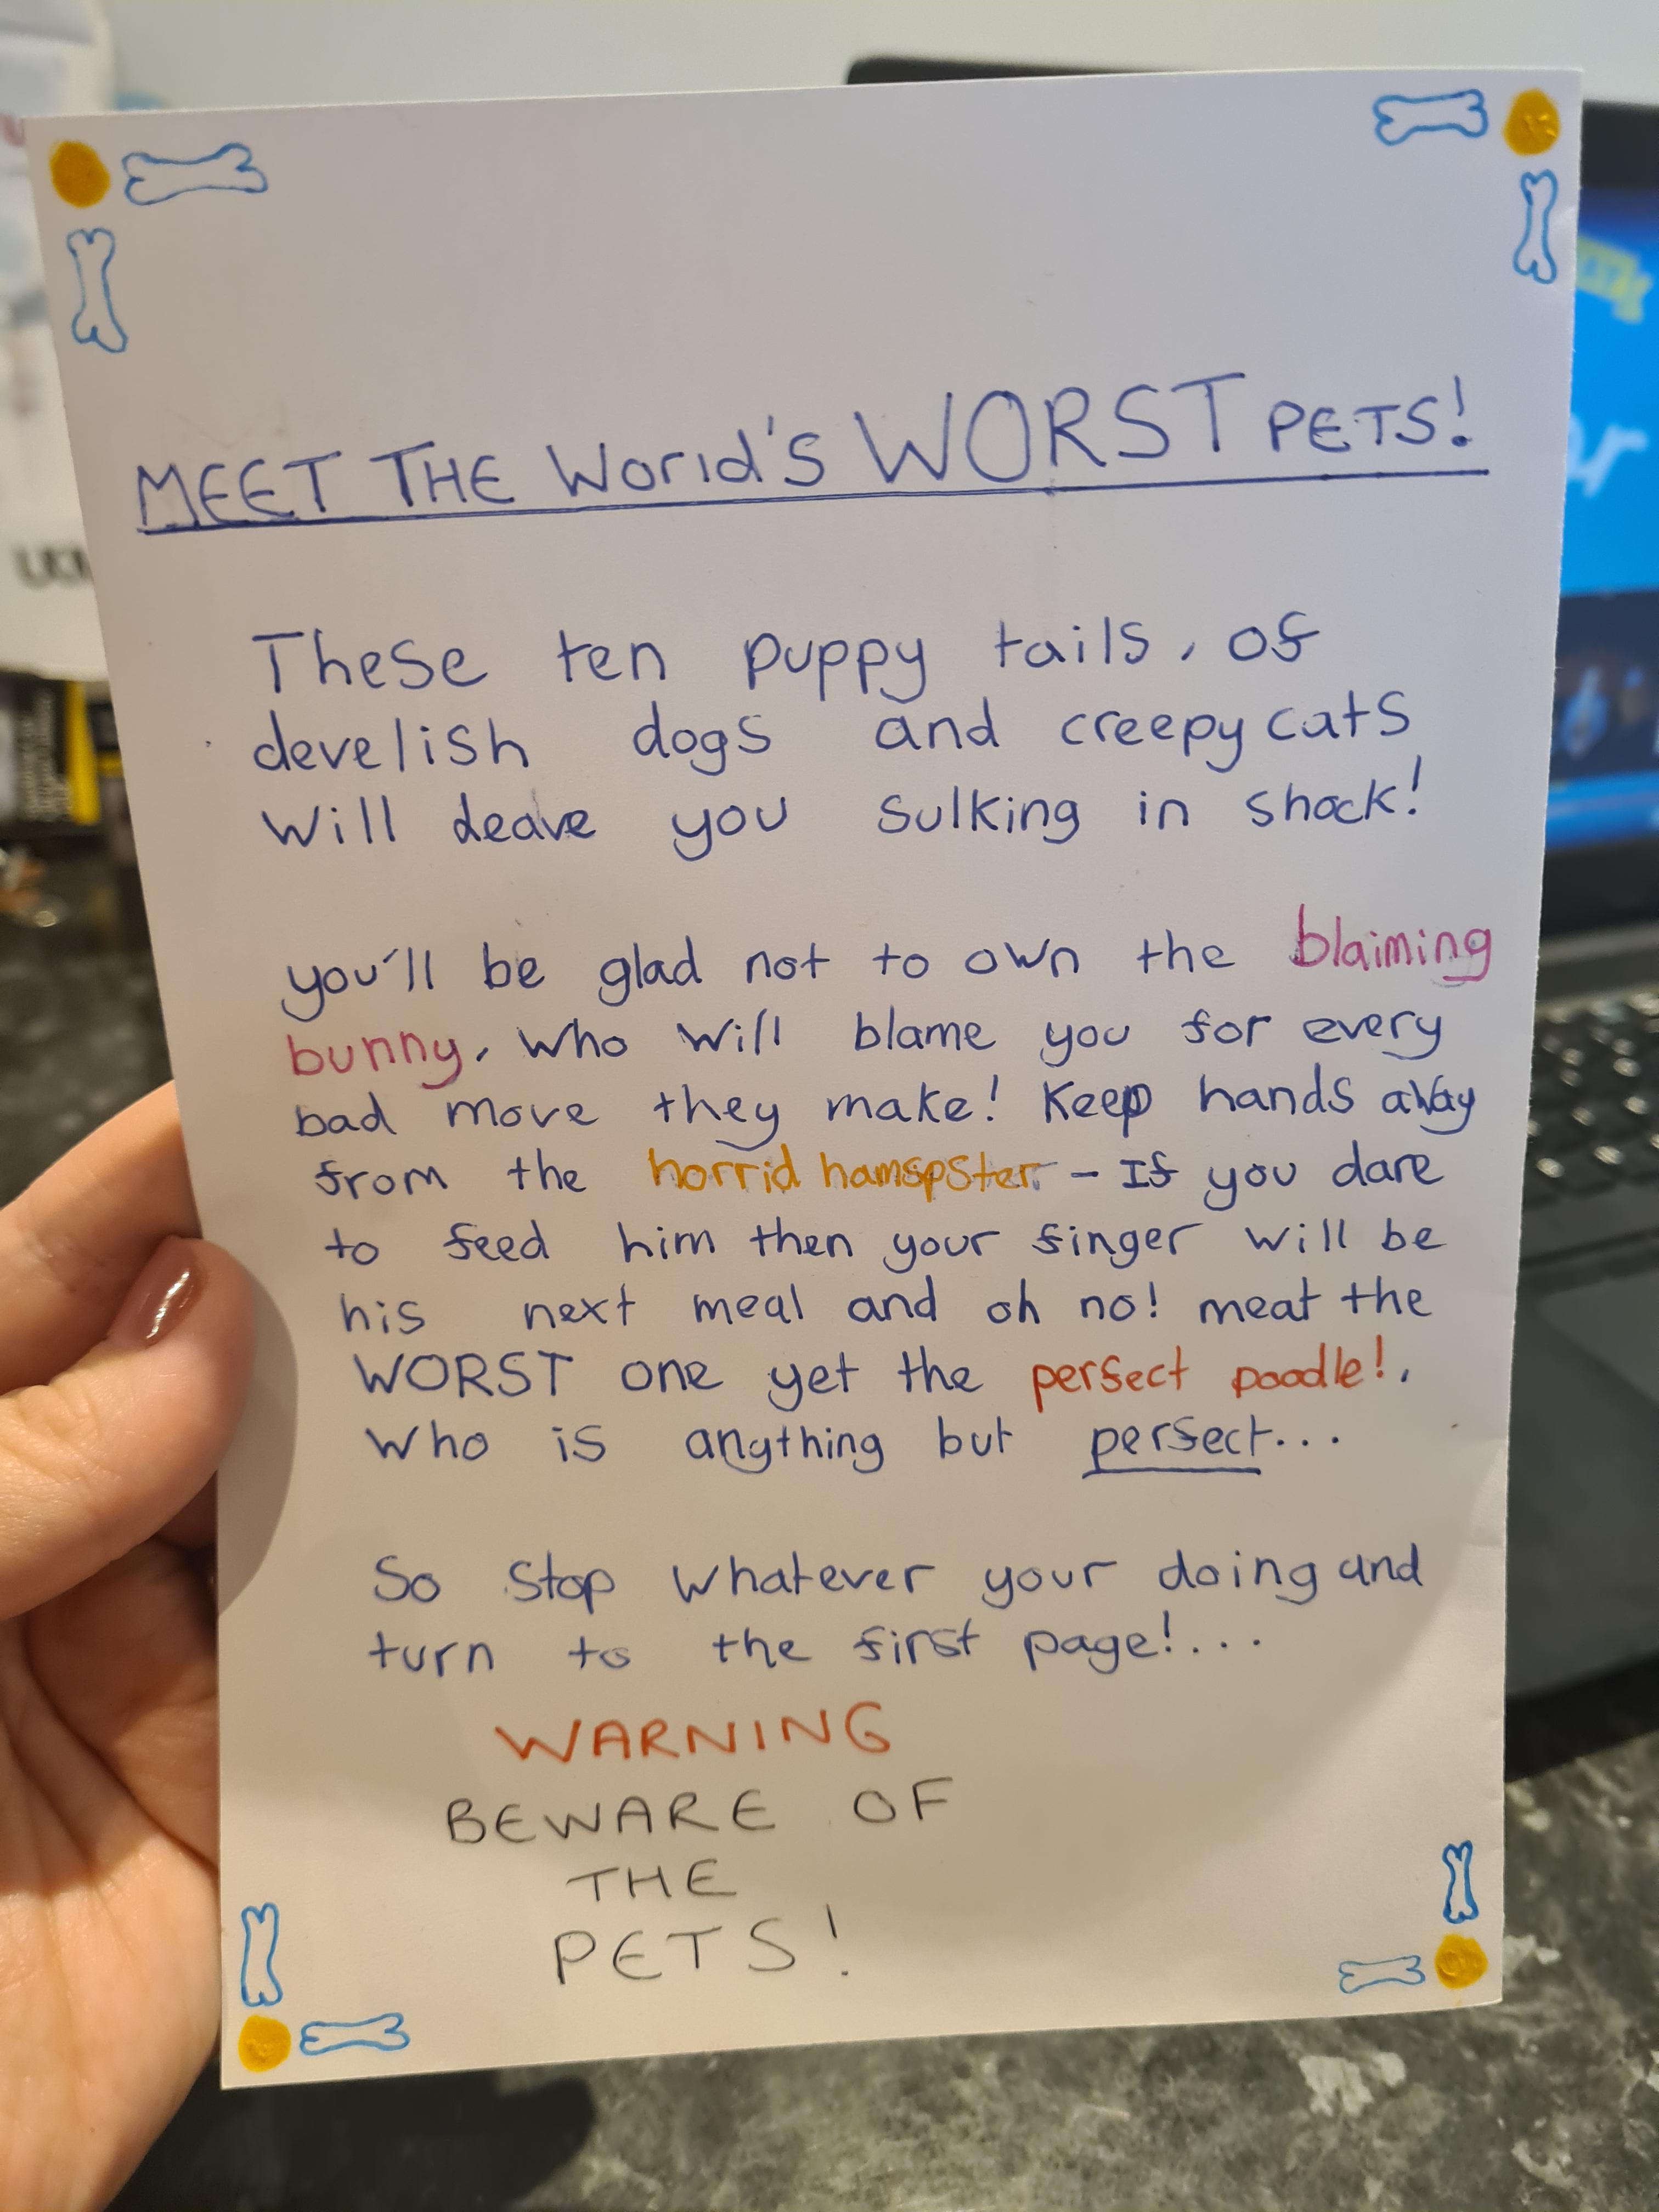 MEET THE World's WORST PETS!
These ten puppy tails, of
develish dogs and creepy cats
Will leave you sulking in shock!
you'll be glad not to own the blaiming
bunny, who will blame you for every
bad move they make! Keep hands away
from the horrid hamspster - If you dare
to feed him then your finger will be
his next meal and oh no! meat the
WORST one yet the perfect poodle!,
Who is anything but perfect...
So stop whatever your doing and
turn to the first page!...
WARNING
BEWARE OF
THE
PETS!